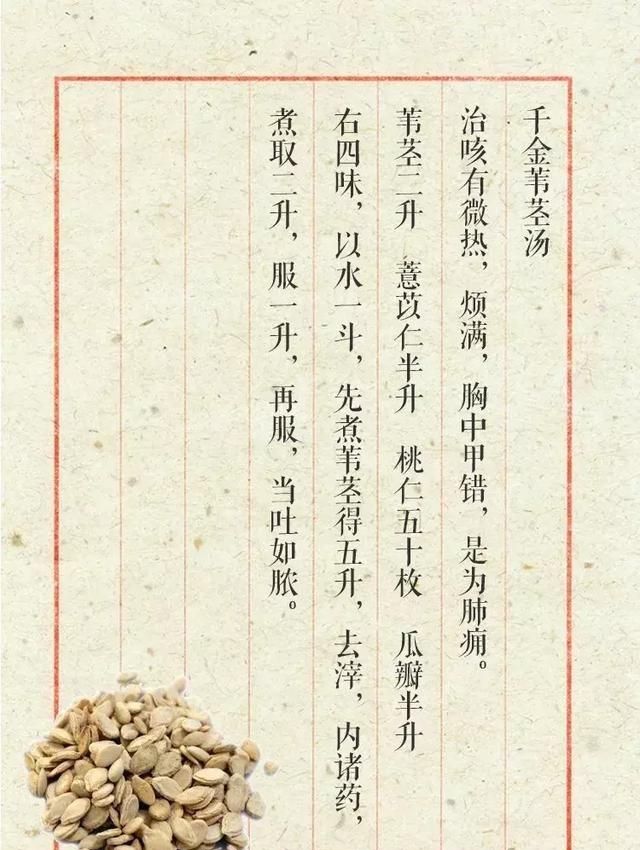 千金苇茎汤
治咳有微热，烦满，胸中甲错，是为肺痈。
苇茎二升 薏苡仁半升 桃仁五十枚 瓜瓣半升
右四味，以水一斗，先煮苇茎得五升，去滓，内诸药，
煮取二升，服一升，再服，当吐如脓。